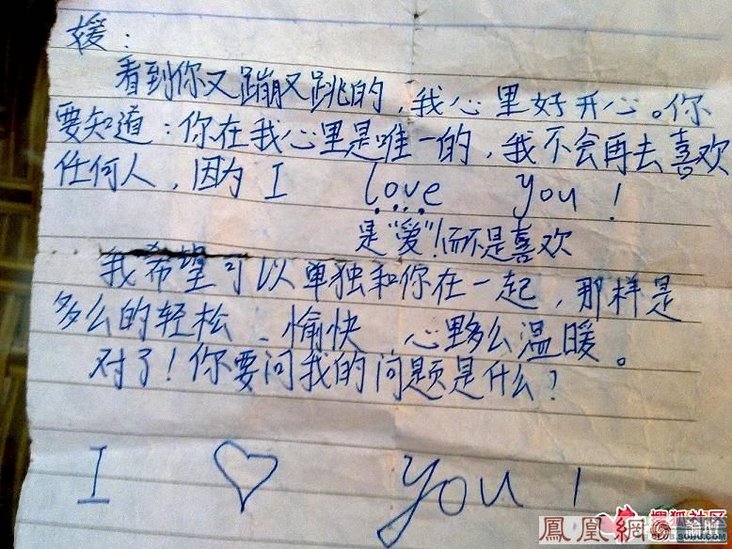 媛：
看到你又蹦又跳的，我心里好开心。你
要知道：你在我心里是唯一的，我不会再去喜欢
任何人，因为 I love you！
是“爱”！而不是喜欢
我希望可以单独和你在一起，那样是
多么的轻松、愉快、心里多么温暖。
对了！你要问我的问题是什么？
I ♡ you！
搜狐社区
鳳凰網 論壇
SOHU.COM